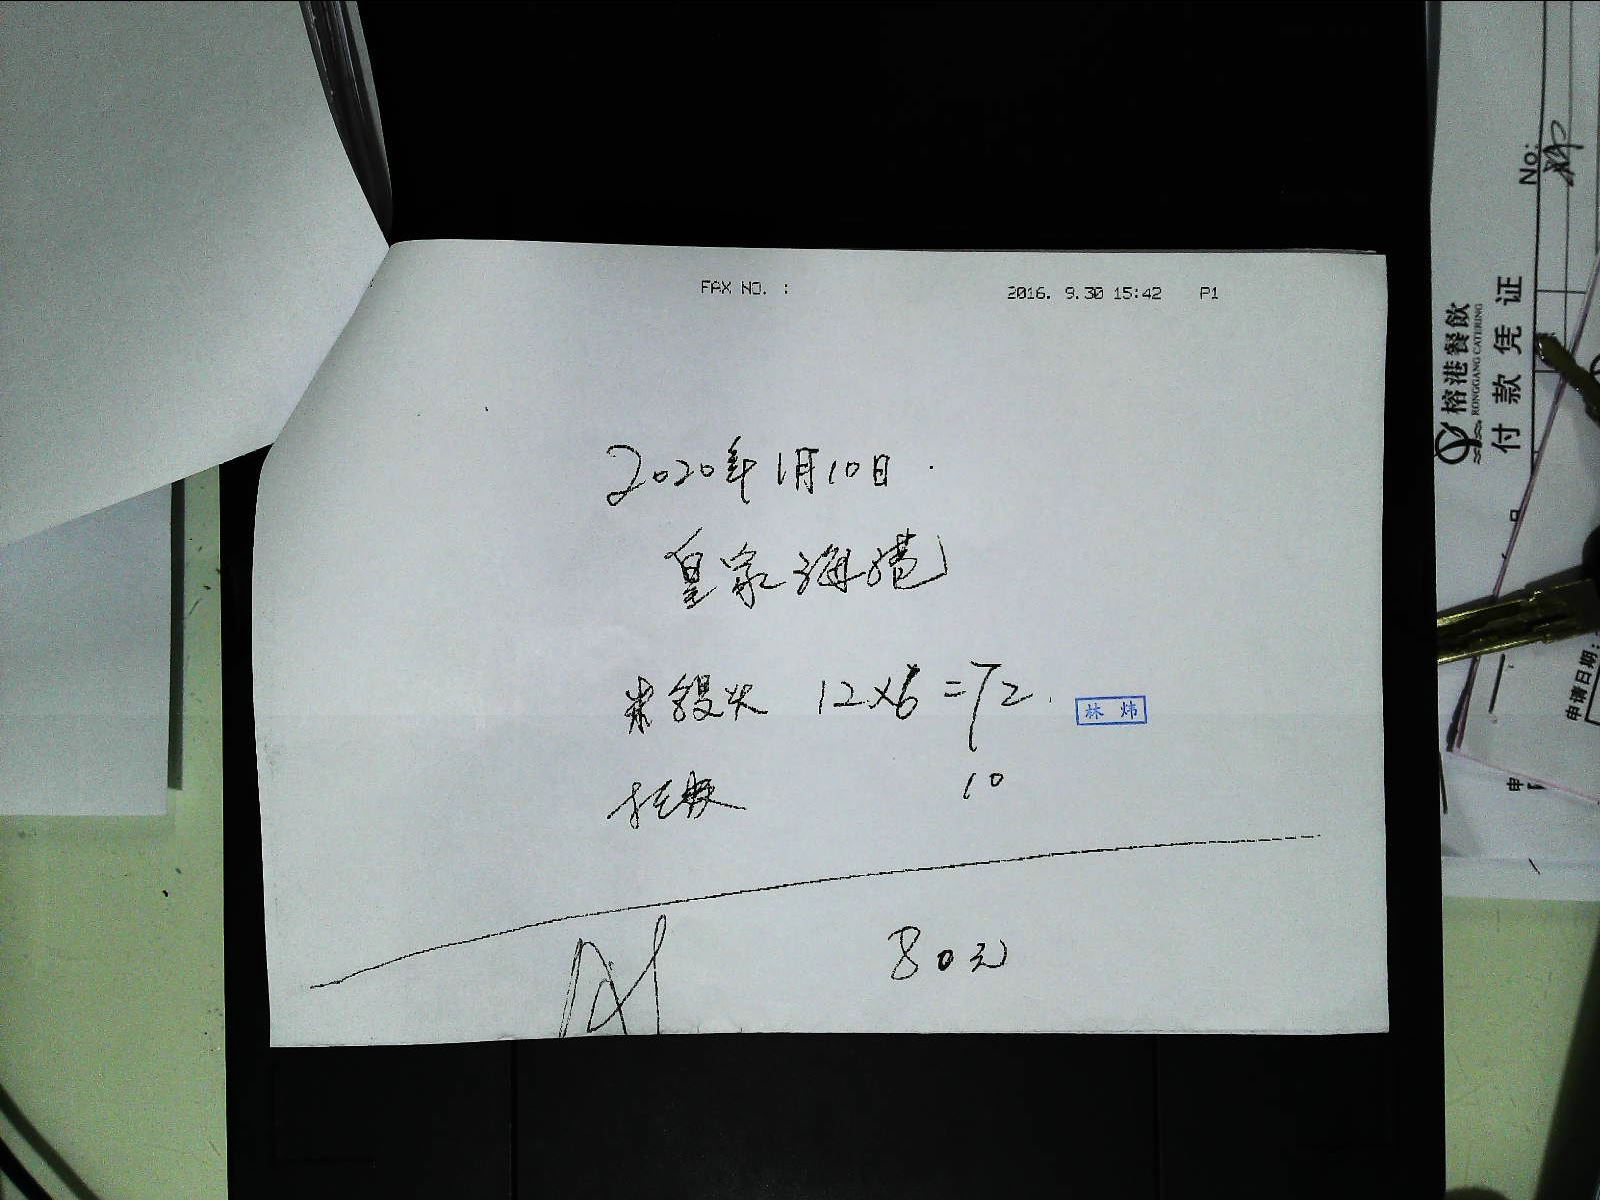 FAX NO. :
2016. 9.30 15:42 P1
2020年1月10日.
皇家海港
米馒头 12×6=72.
林 炜
10
80元
榕港餐飲
RONGGANG CATERING
付款凭证
No:
申请日期: